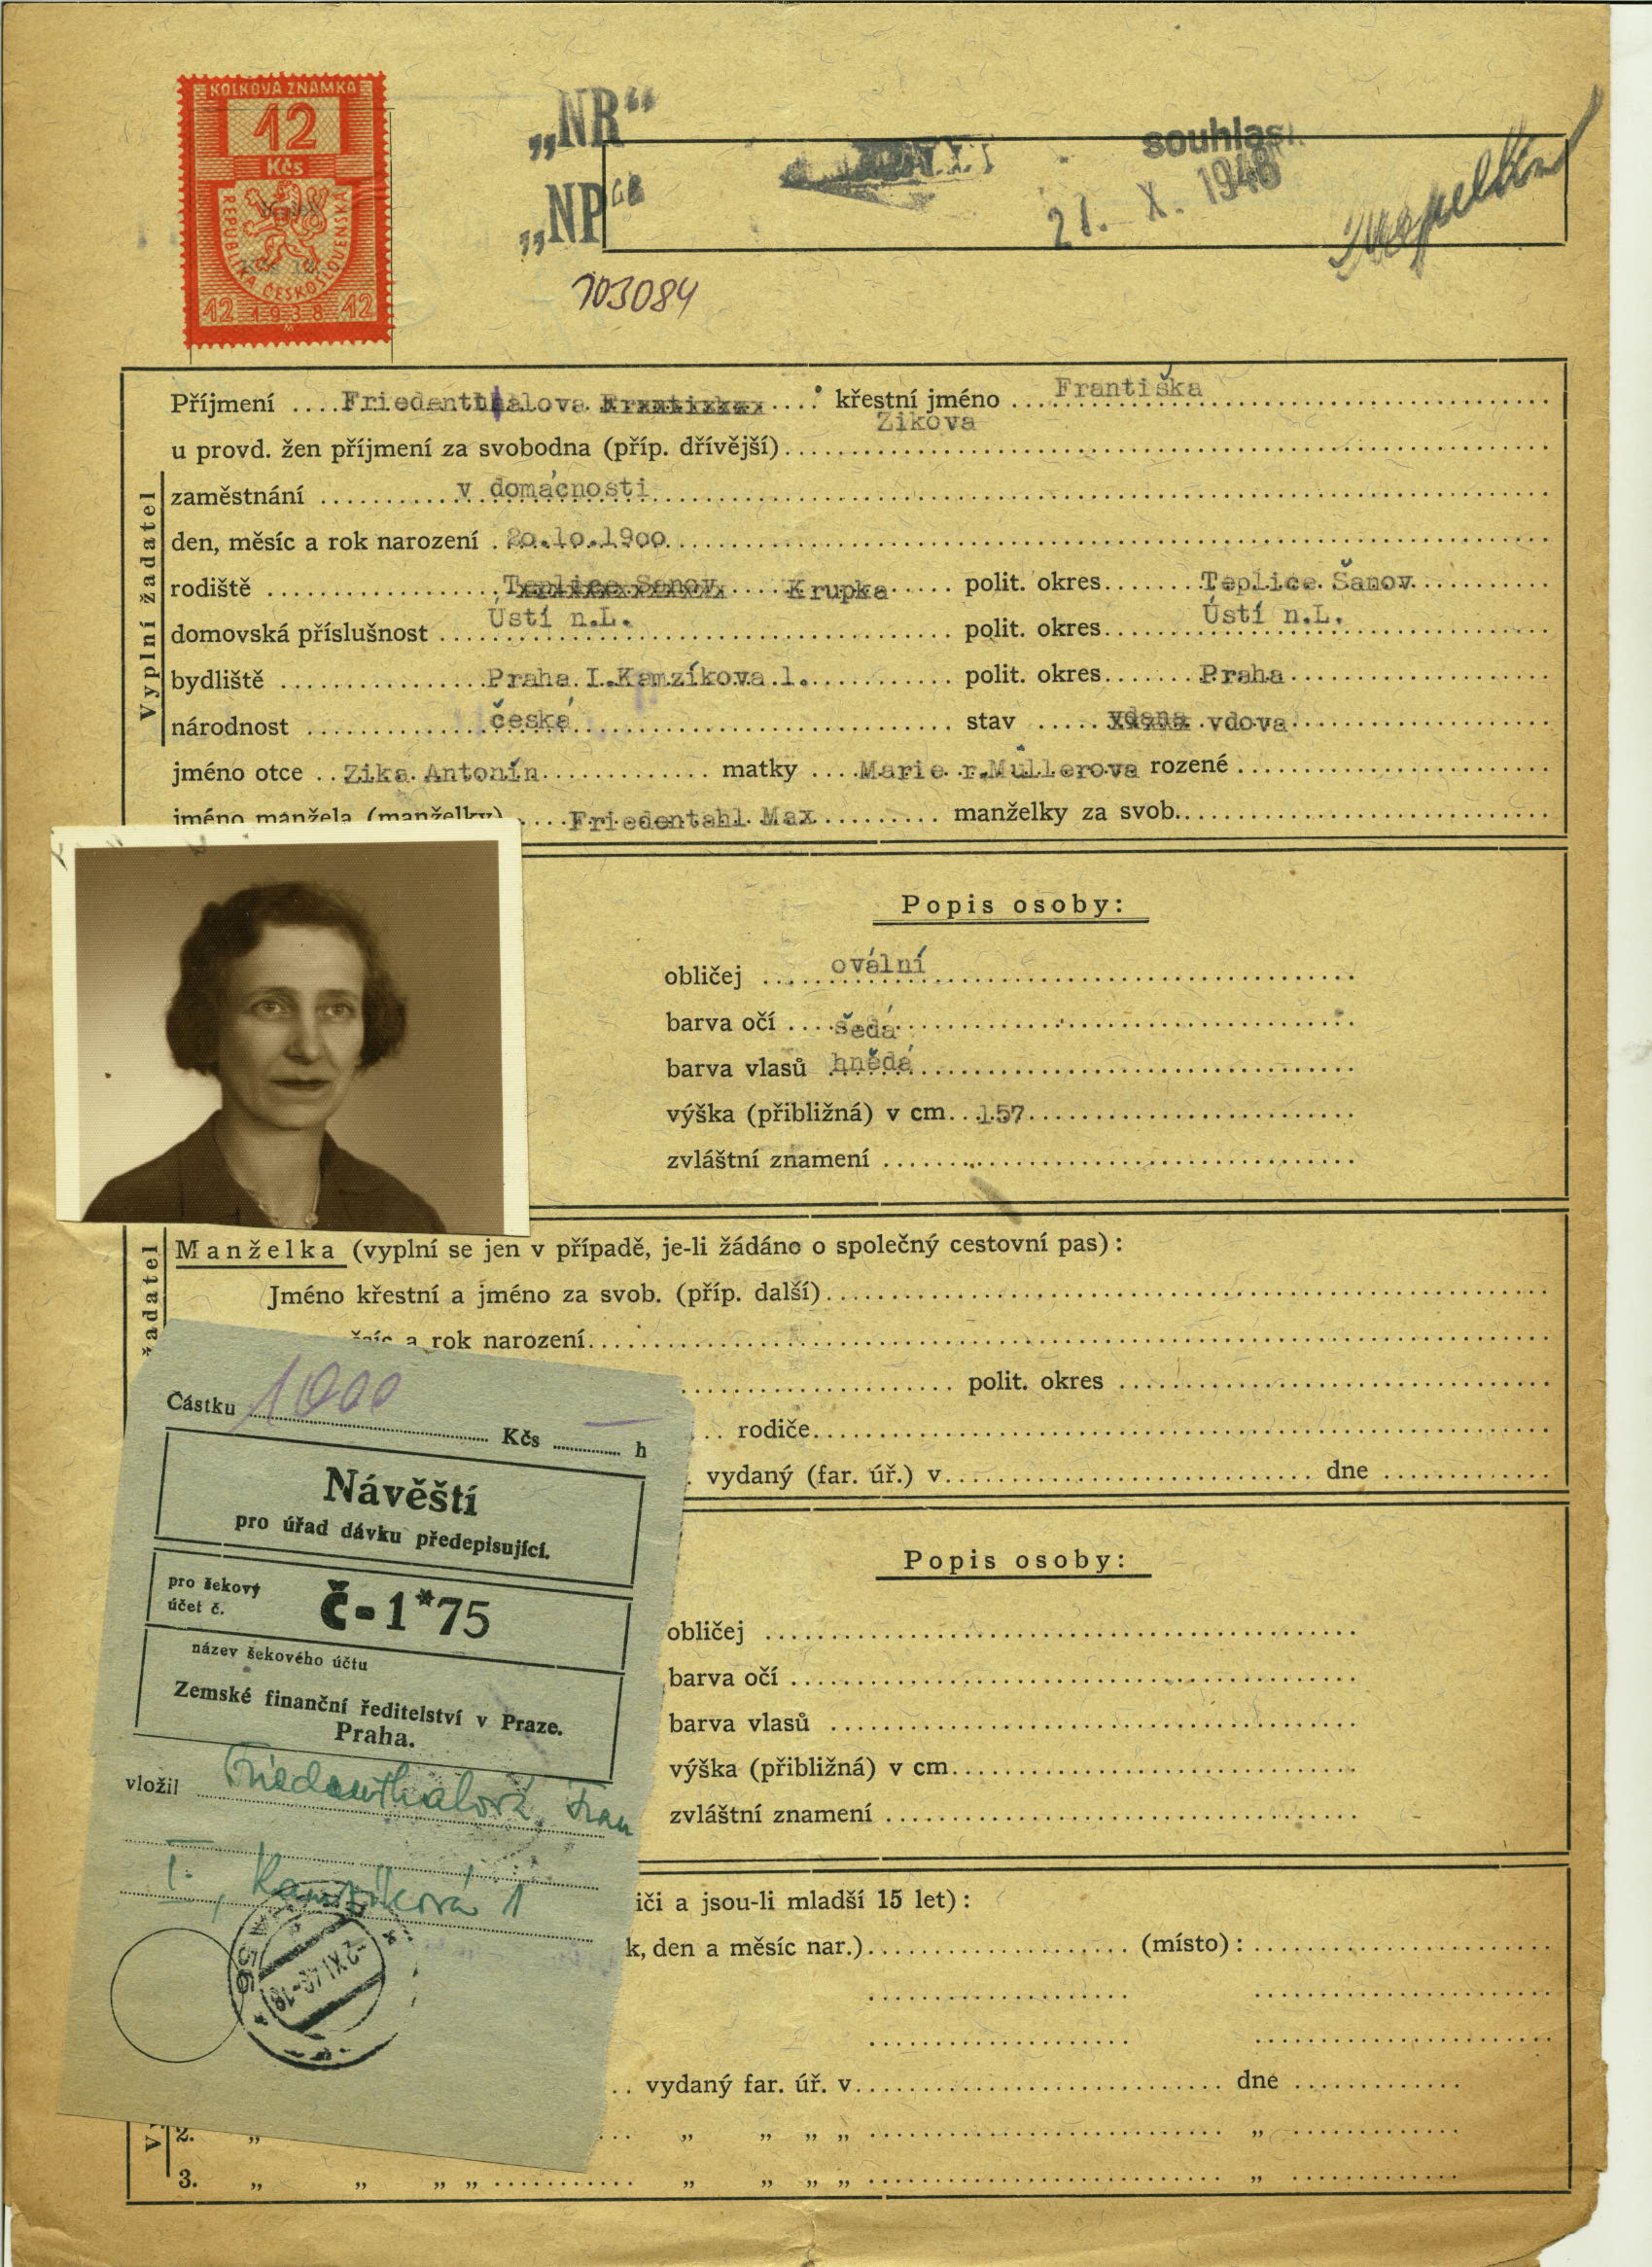 KOLKOVÁ ZNÁMKA
12
Kčs
REPUBLIKA ČESKOSLOVENSKÁ
12 1938 12
M
„NR“
„NP“
souhlas
21. X. 1948
103084
Příjmení .... Friedenthalova .... křestní jméno .... Františka
u provd. žen příjmení za svobodna (příp. dřívější) .... Zikova
Vyplní žadatel
zaměstnání .... v domácnosti
den, měsíc a rok narození . 2o.1o.19oo
rodiště .... Teplice Sanov .... Krupka .... polit. okres .... Teplice Šanov
domovská příslušnost .... Ústí n.L. .... polit. okres .... Ústí n.L.
bydliště .... Praha I.Kamzíkova 1. .... polit. okres .... Praha
národnost .... česká .... stav .... vdana vdova
jméno otce .. Zika Antonín .... matky .... Marie r.Mullerova rozené ....
jméno manžela (manželky) .... Friedentahl Max .... manželky za svob. ....
Popis osoby:
obličej .... ovální
barva očí .... šedá
barva vlasů hnědá
výška (přibližná) v cm .. 157
zvláštní znamení ....
žadatel
Manželka (vyplní se jen v případě, je-li žádáno o společný cestovní pas):
Jméno křestní a jméno za svob. (příp. další) ....
a rok narození ....
polit. okres ....
rodiče ....
vydaný (far. úř.) v .... dne ....
Popis osoby:
obličej ....
barva očí ....
barva vlasů ....
výška (přibližná) v cm ....
zvláštní znamení ....
iči a jsou-li mladší 15 let):
k, den a měsíc nar.) .... (místo): ....
.. vydaný far. úř. v .... dne ....
2. „ .... „ „ „ „ .... „ ....
3. „ „ „ „ .... „ „ „ „ .... „ ....
Částku 1000 Kčs — h
Návěští
pro úřad dávku předepisující.
pro šekový
účet č.
Č-1*75
název šekového účtu
Zemské finanční ředitelství v Praze.
Praha.
vložil Friedenthalová Fran
I., Kamzíková 1